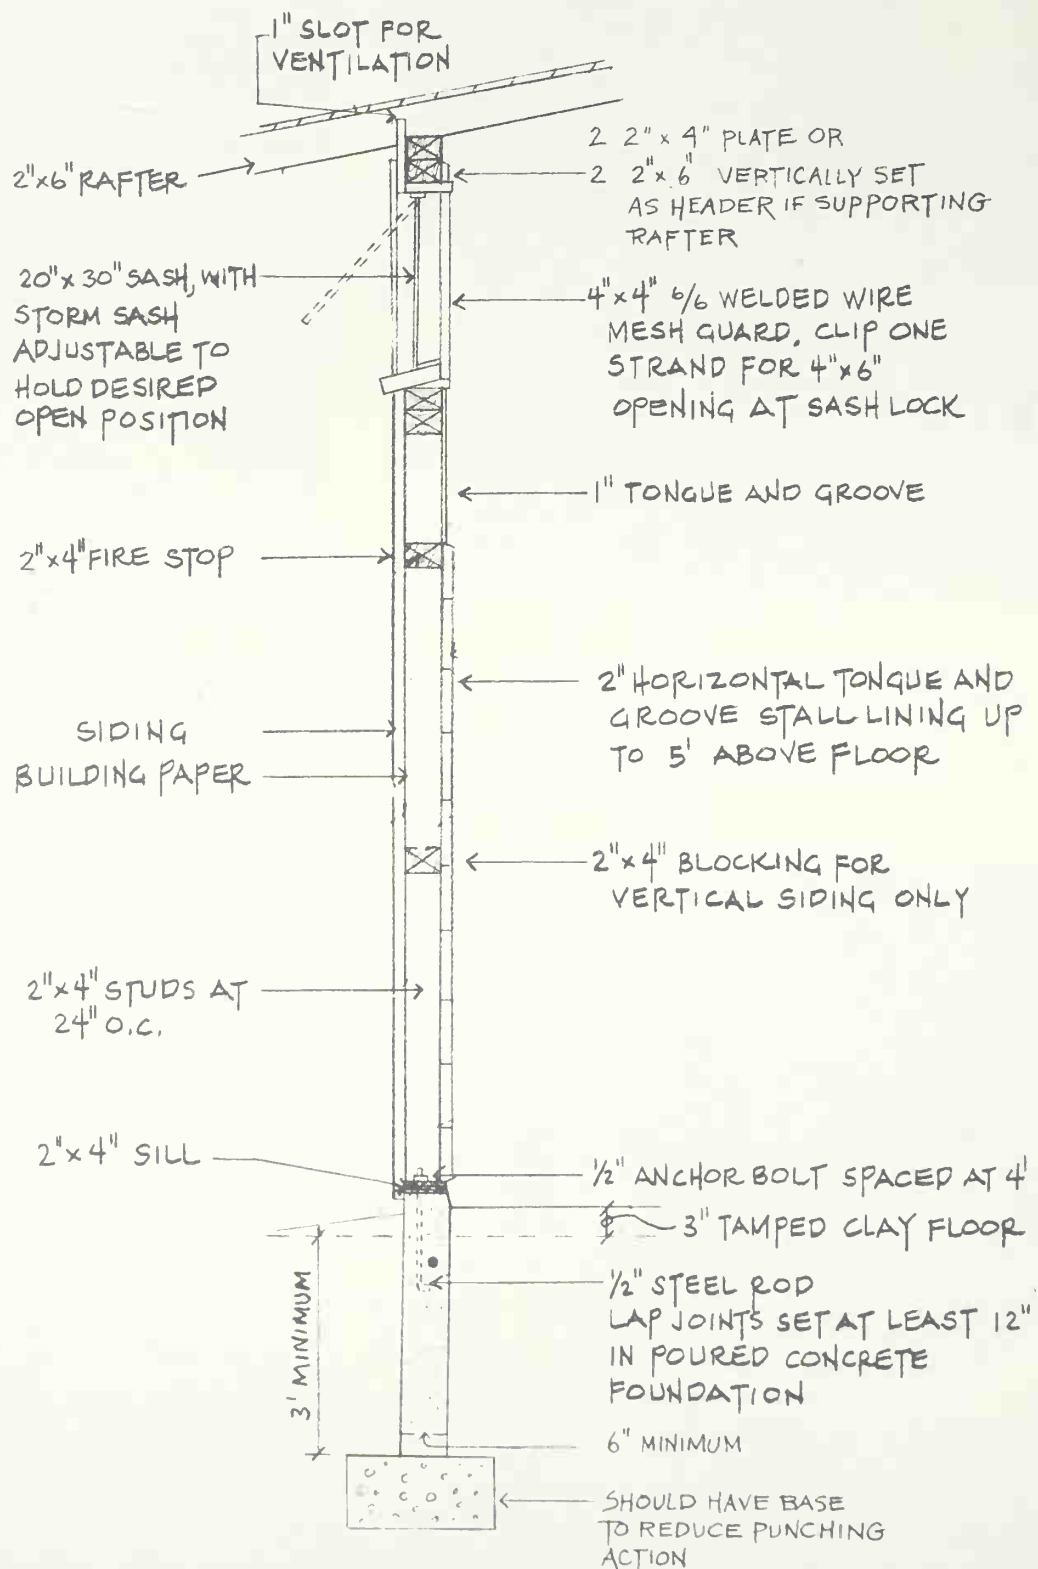 1" SLOT FOR
VENTILATION
2"x6" RAFTER
2 2"x 4" PLATE OR
2 2"x 6" VERTICALLY SET
AS HEADER IF SUPPORTING
RAFTER
20"x 30" SASH, WITH
STORM SASH
ADJUSTABLE TO
HOLD DESIRED
OPEN POSITION
4"x4" 6/6 WELDED WIRE
MESH GUARD. CLIP ONE
STRAND FOR 4"x6"
OPENING AT SASH LOCK
1" TONGUE AND GROOVE
2"x4" FIRE STOP
2" HORIZONTAL TONGUE AND
GROOVE STALL LINING UP
TO 5' ABOVE FLOOR
SIDING
BUILDING PAPER
2"x4" BLOCKING FOR
VERTICAL SIDING ONLY
2"x4" STUDS AT
24" O.C.
2"x4" SILL
1/2" ANCHOR BOLT SPACED AT 4'
3" TAMPED CLAY FLOOR
1/2" STEEL ROD
LAP JOINTS SET AT LEAST 12"
IN POURED CONCRETE
FOUNDATION
3' MINIMUM
6" MINIMUM
SHOULD HAVE BASE
TO REDUCE PUNCHING
ACTION